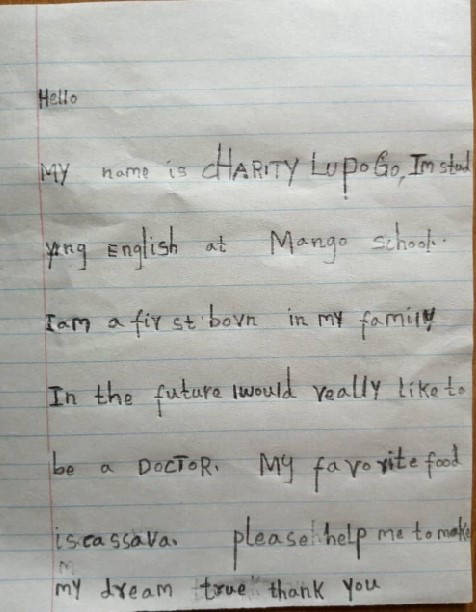 Hello
MY name is CHARITY LUPOGO, Im stud
ying English at Mango school.
I am a first born in my family
In the future I would really like to
be a DOCTOR. My favorite food
is cassava. please help me to make
my dream true thank you